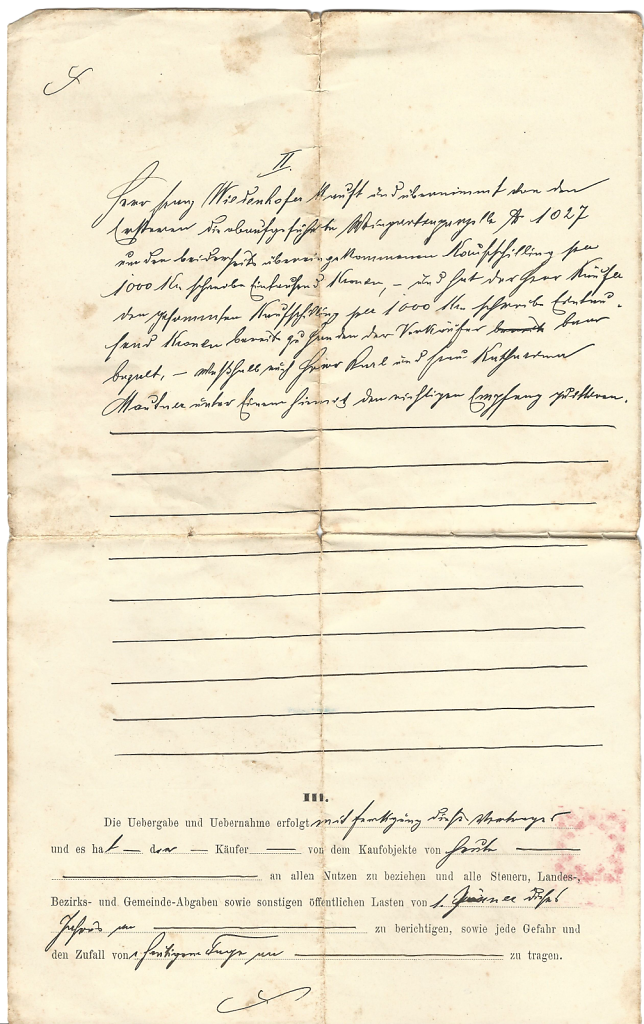 II.
Herr Franz Wiedenhofer kauft und übernimmt von den
Ersteren die obaufgeführte Weingartenparzelle № 1027
um den beiderseits übereingekommenen Kaufschilling per
1000 Kr. schreibe Eintausend Kronen, – und hat der Herr Käufer
den gesammten Kaufschilling per 1000 Kr. schreibe Eintau-
send Kronen bereits zu Handen der Verkäufer bereits baar
bezalt, – weßhalb auch Herr Karl und Frau Katharina
unter Einem hierort den richtigen Empfang quittiren.
III.
Die Uebergabe und Uebernahme erfolgt mit Fertigung dieses Vertrages
und es hat – der – Käufer – von dem Kaufobjekte von heute –
an allen Nutzen zu beziehen und alle Steuern, Landes-,
Bezirks- und Gemeinde-Abgaben sowie sonstigen öffentlichen Lasten von 1. Jänner dieses
Jahres an zu berichtigen, sowie jede Gefahr und
den Zufall vom heutigen Tage an zu tragen.